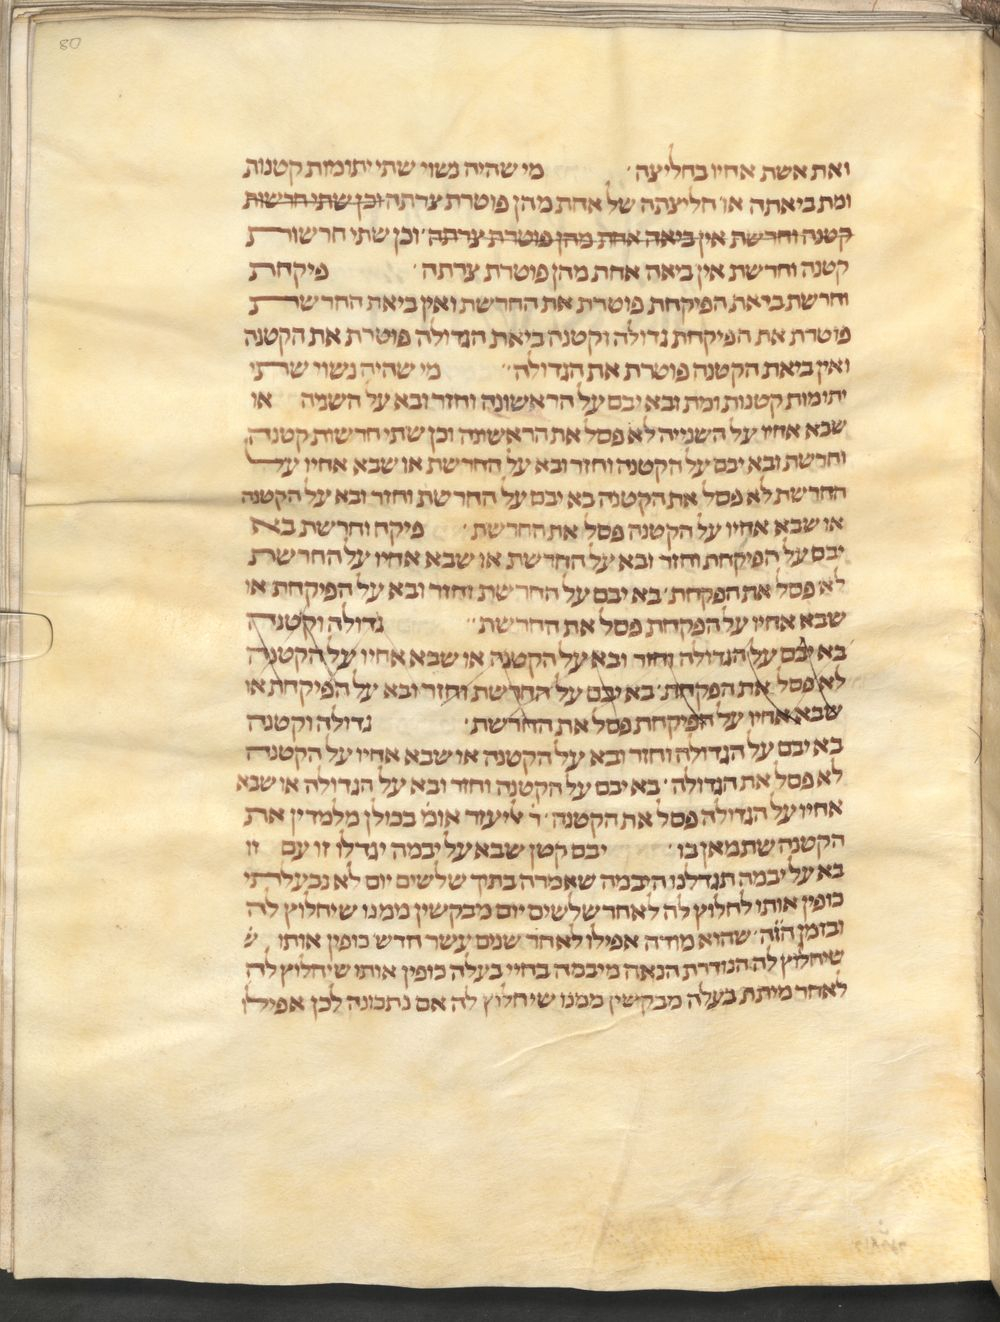 80
ואת אשת אחיו בחליצה׳ מי שהיה נשוי שתי יתומות קטנות
ומת ביאתה או חליצתה של אחת מהן פוטרת צרתה וכן שתי חרשות
קטנה וחרשת אין ביאה אחת מהן פוטרת צרתה׳ וכן שתי חרשות
קטנה וחרשת אין ביאה אחת מהן פוטרת צרתה׳ פיקחת
וחרשת ביאת הפיקחת פוטרת את החרשת ואין ביאת החרשת
פוטרת את הפיקחת גדולה וקטנה ביאת הגדולה פוטרת את הקטנה
ואין ביאת הקטנה פוטרת את הגדולה׳׳ מי שהיה נשוי שתי
יתומות קטנות ומת ובא יבם על הראשונה וחזר ובא על השניה או
שבא אחיו על השנייה לא פסל את הראשונה וכן שתי חרשות קטנה
וחרשת ובא יבם על הקטנה וחזר ובא על החרשת או שבא אחיו על
החרשת לא פסל את הקטנה בא יבם על החרשת וחזר ובא על הקטנה
או שבא אחיו על הקטנה פסל את החרשת׳ פיקח וחרשת בא
יבם על הפיקחת וחזר ובא על החרשת או שבא אחיו על החרשת
לא פסל את הפקחת׳ בא יבם על החרשת וחזר ובא על הפיקחת או
שבא אחיו על הפקחת פסל את החרשת׳׳ גדולה וקטנה
בא יבם על הגדולה וחזר ובא על הקטנה או שבא אחיו על הקטנה
לא פסל את הפקחת׳ בא יבם על החרשת וחזר ובא על הפיקחת או
שבא אחיו על הפיקחת פסל את החרשת׳ גדולה וקטנה
בא יבם על הגדולה וחזר ובא על הקטנה או שבא אחיו על הקטנה
לא פסל את הגדולה׳ בא יבם על הקטנה וחזר ובא על הגדולה או שבא
אחיו על הגדולה פסל את הקטנה׳ ר׳ ליעזר אומ׳ בכולן מלמדין את
הקטנה שתמאן בו׳ יבם קטן שבא על יבמה יגדלו זו עם זו
בא על יבמה תגדלנו היבמה שאמרה בתוך שלשים יום לא נבעלתי
כופין אותו לחלוץ לה לאחר שלשים יום מבקשין ממנו שיחלוץ לה
ובזמן הזה׳ שהוא מודה אפילו לאחר שנים עשר חדש כופין אותו ש
שיחלוץ לה הנודרת הנאה מיבמה בחיי בעלה כופין אותו שיחלוץ לה
לאחר מיתת בעלה מבקשין ממנו שיחלוץ לה אם נתכוונה לכן אפילו